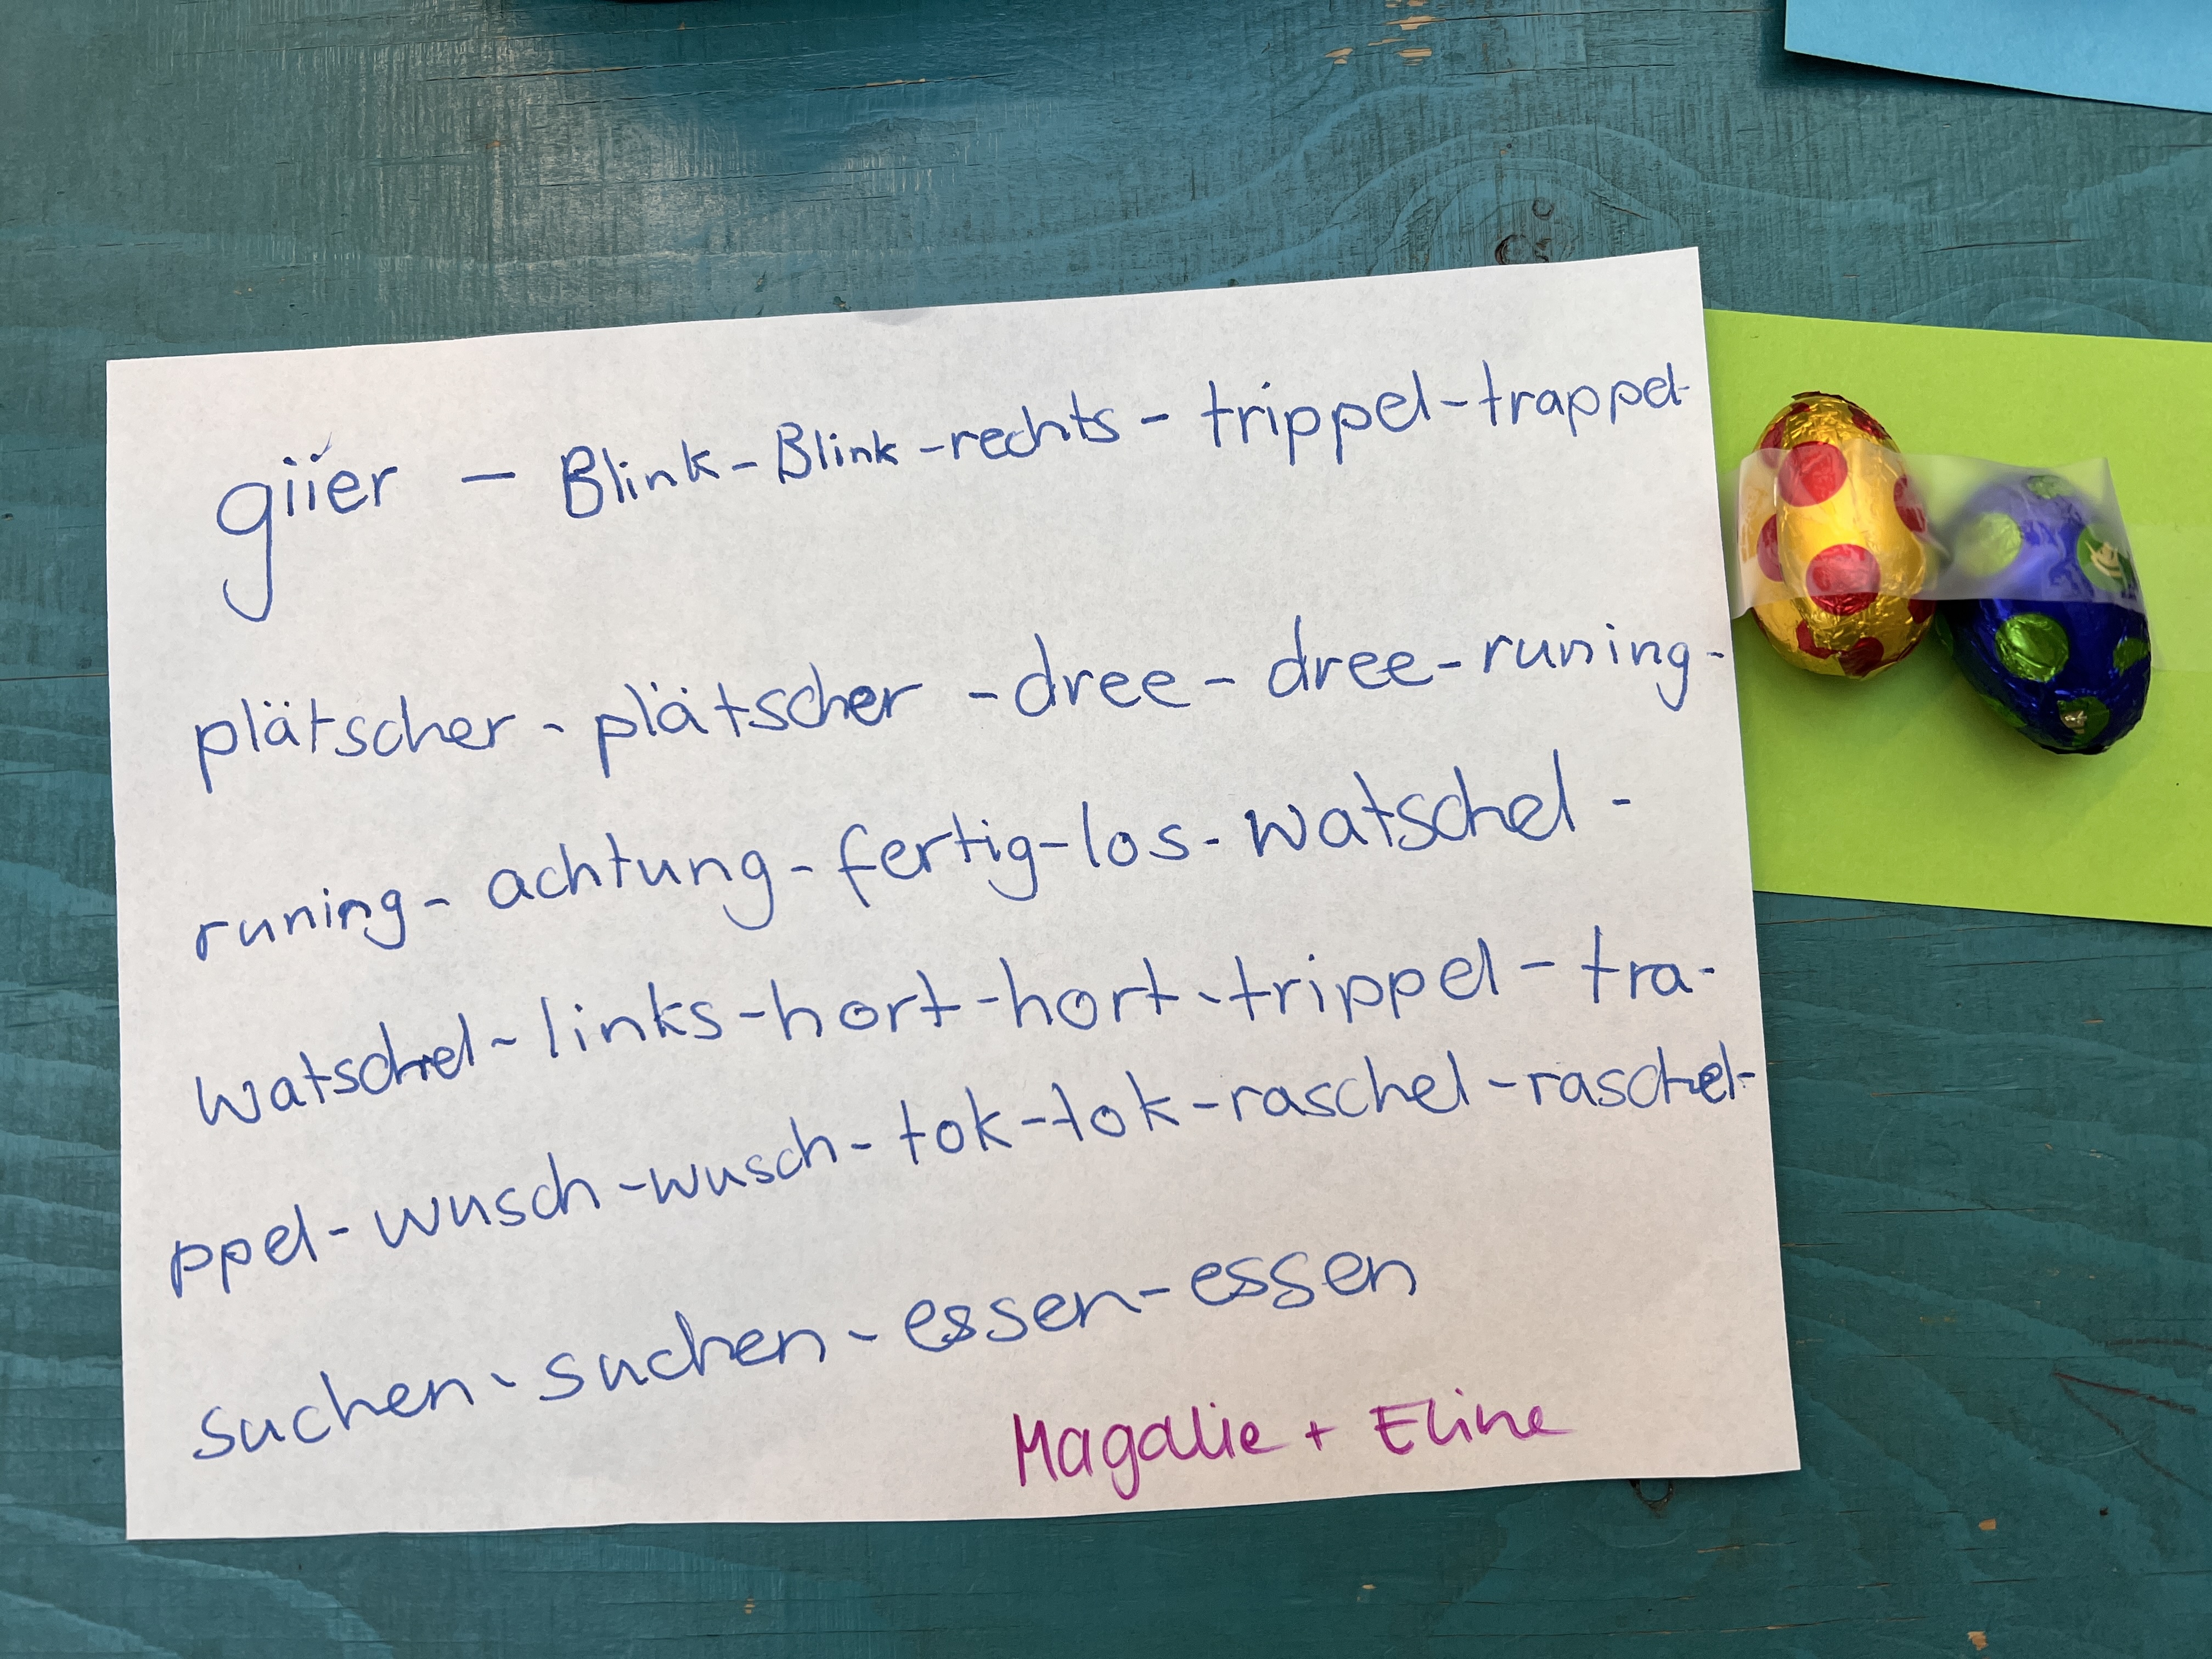 giier - Blink-Blink-rechts - trippel-trappel-
plätscher - plätscher - dree - dree - runing -
runing - achtung - fertig - los - watschel -
watschel - links - hort - hort - trippel - tra-
ppel - wusch - wusch - tok - tok - raschel - raschel-
suchen - suchen - essen - essen
Magalie + Eline